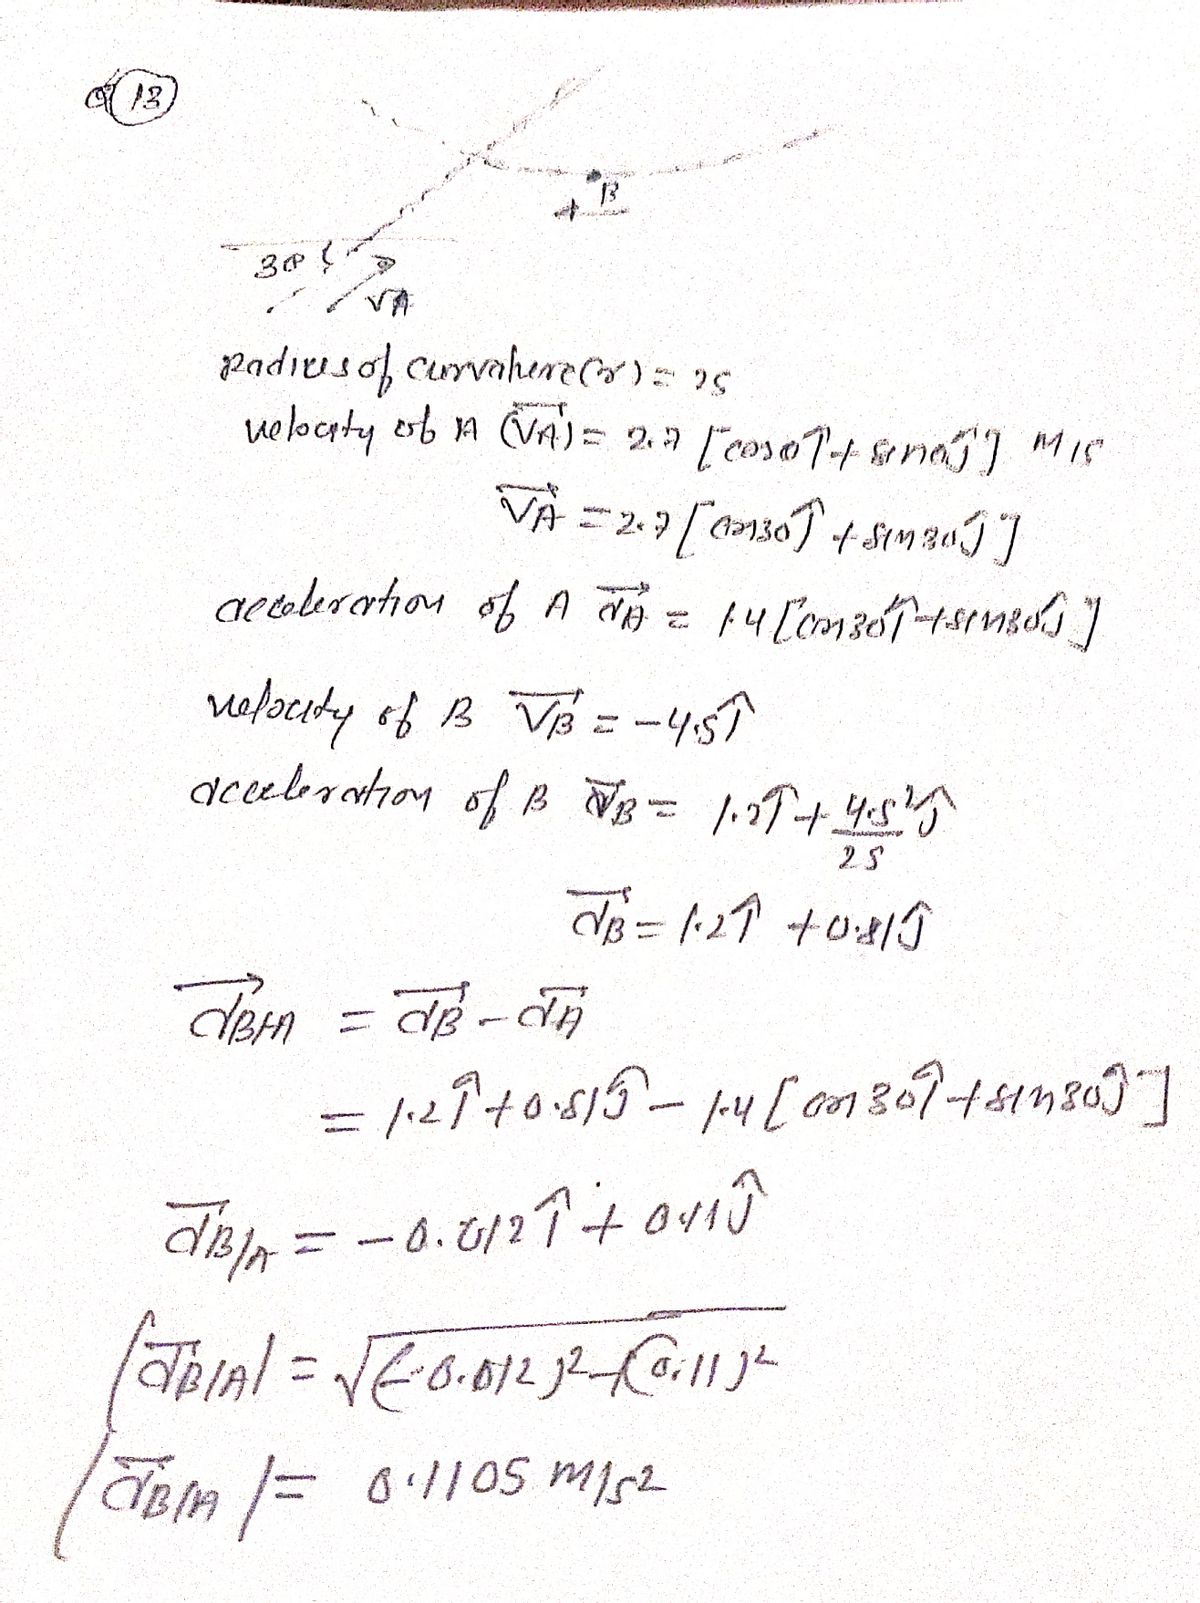 Q 13
B
30
VA
Radius of curvature (r) = 25
velocity of A (V⃗A) = 2.7 [cosθ î + sinθ ĵ] m/s
V⃗A = 2.7 [cos30 î + sin30 ĵ]
acceleration of A a⃗A = 1.4 [cos30 î + sin30 ĵ]
velocity of B V⃗B = -4.5 î
acceleration of B a⃗B = 1.2 î + 4.5²/25 ĵ
a⃗B = 1.2 î + 0.81 ĵ
a⃗B/A = a⃗B - a⃗A
= 1.2 î + 0.81 ĵ - 1.4 [cos30 î + sin30 ĵ]
a⃗B/A = -0.012 î + 0.11 ĵ
|a⃗B/A| = √(-0.012)² + (0.11)²
|a⃗B/A| = 0.1105 m/s2